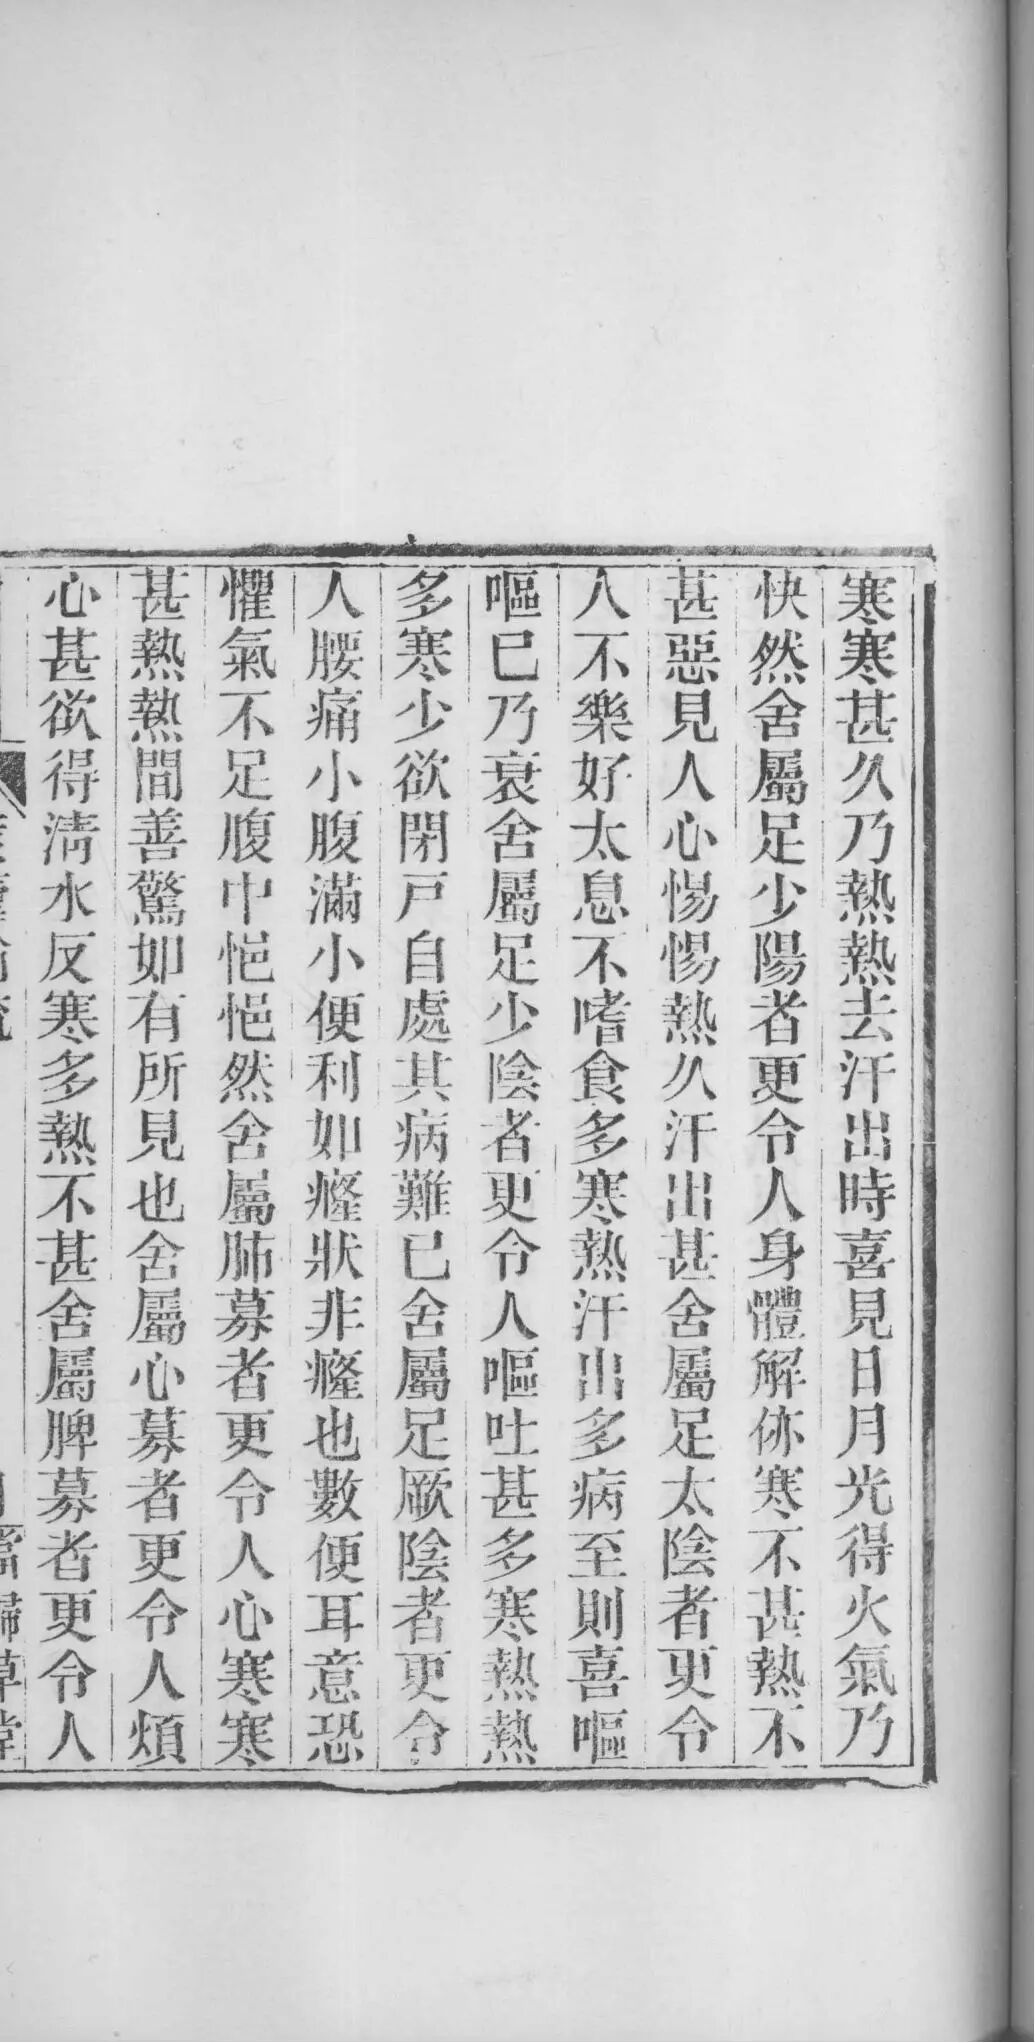 寒寒甚久乃熱熱去汗出時喜見日月光得火氣乃
快然舍屬足少陽者更令人身體解㑊寒不甚熱不
甚惡見人心惕惕熱久汗出甚舍屬足太陰者更令
人不樂好太息不嗜食多寒熱汗出多病至則喜嘔
嘔已乃衰舍屬足少陰者更令人嘔吐甚多寒熱熱
多寒少欲閉戸自處其病難已舍屬足厥陰者更令
人腰痛小腹滿小便利如癃狀非癃也數便耳意恐
懼氣不足腹中悒悒然舍屬肺募者更令人心寒寒
甚熱熱間善驚如有所見也舍屬心募者更令人煩
心甚欲得清水反寒多熱不甚舍屬脾募者更令人
當歸草堂